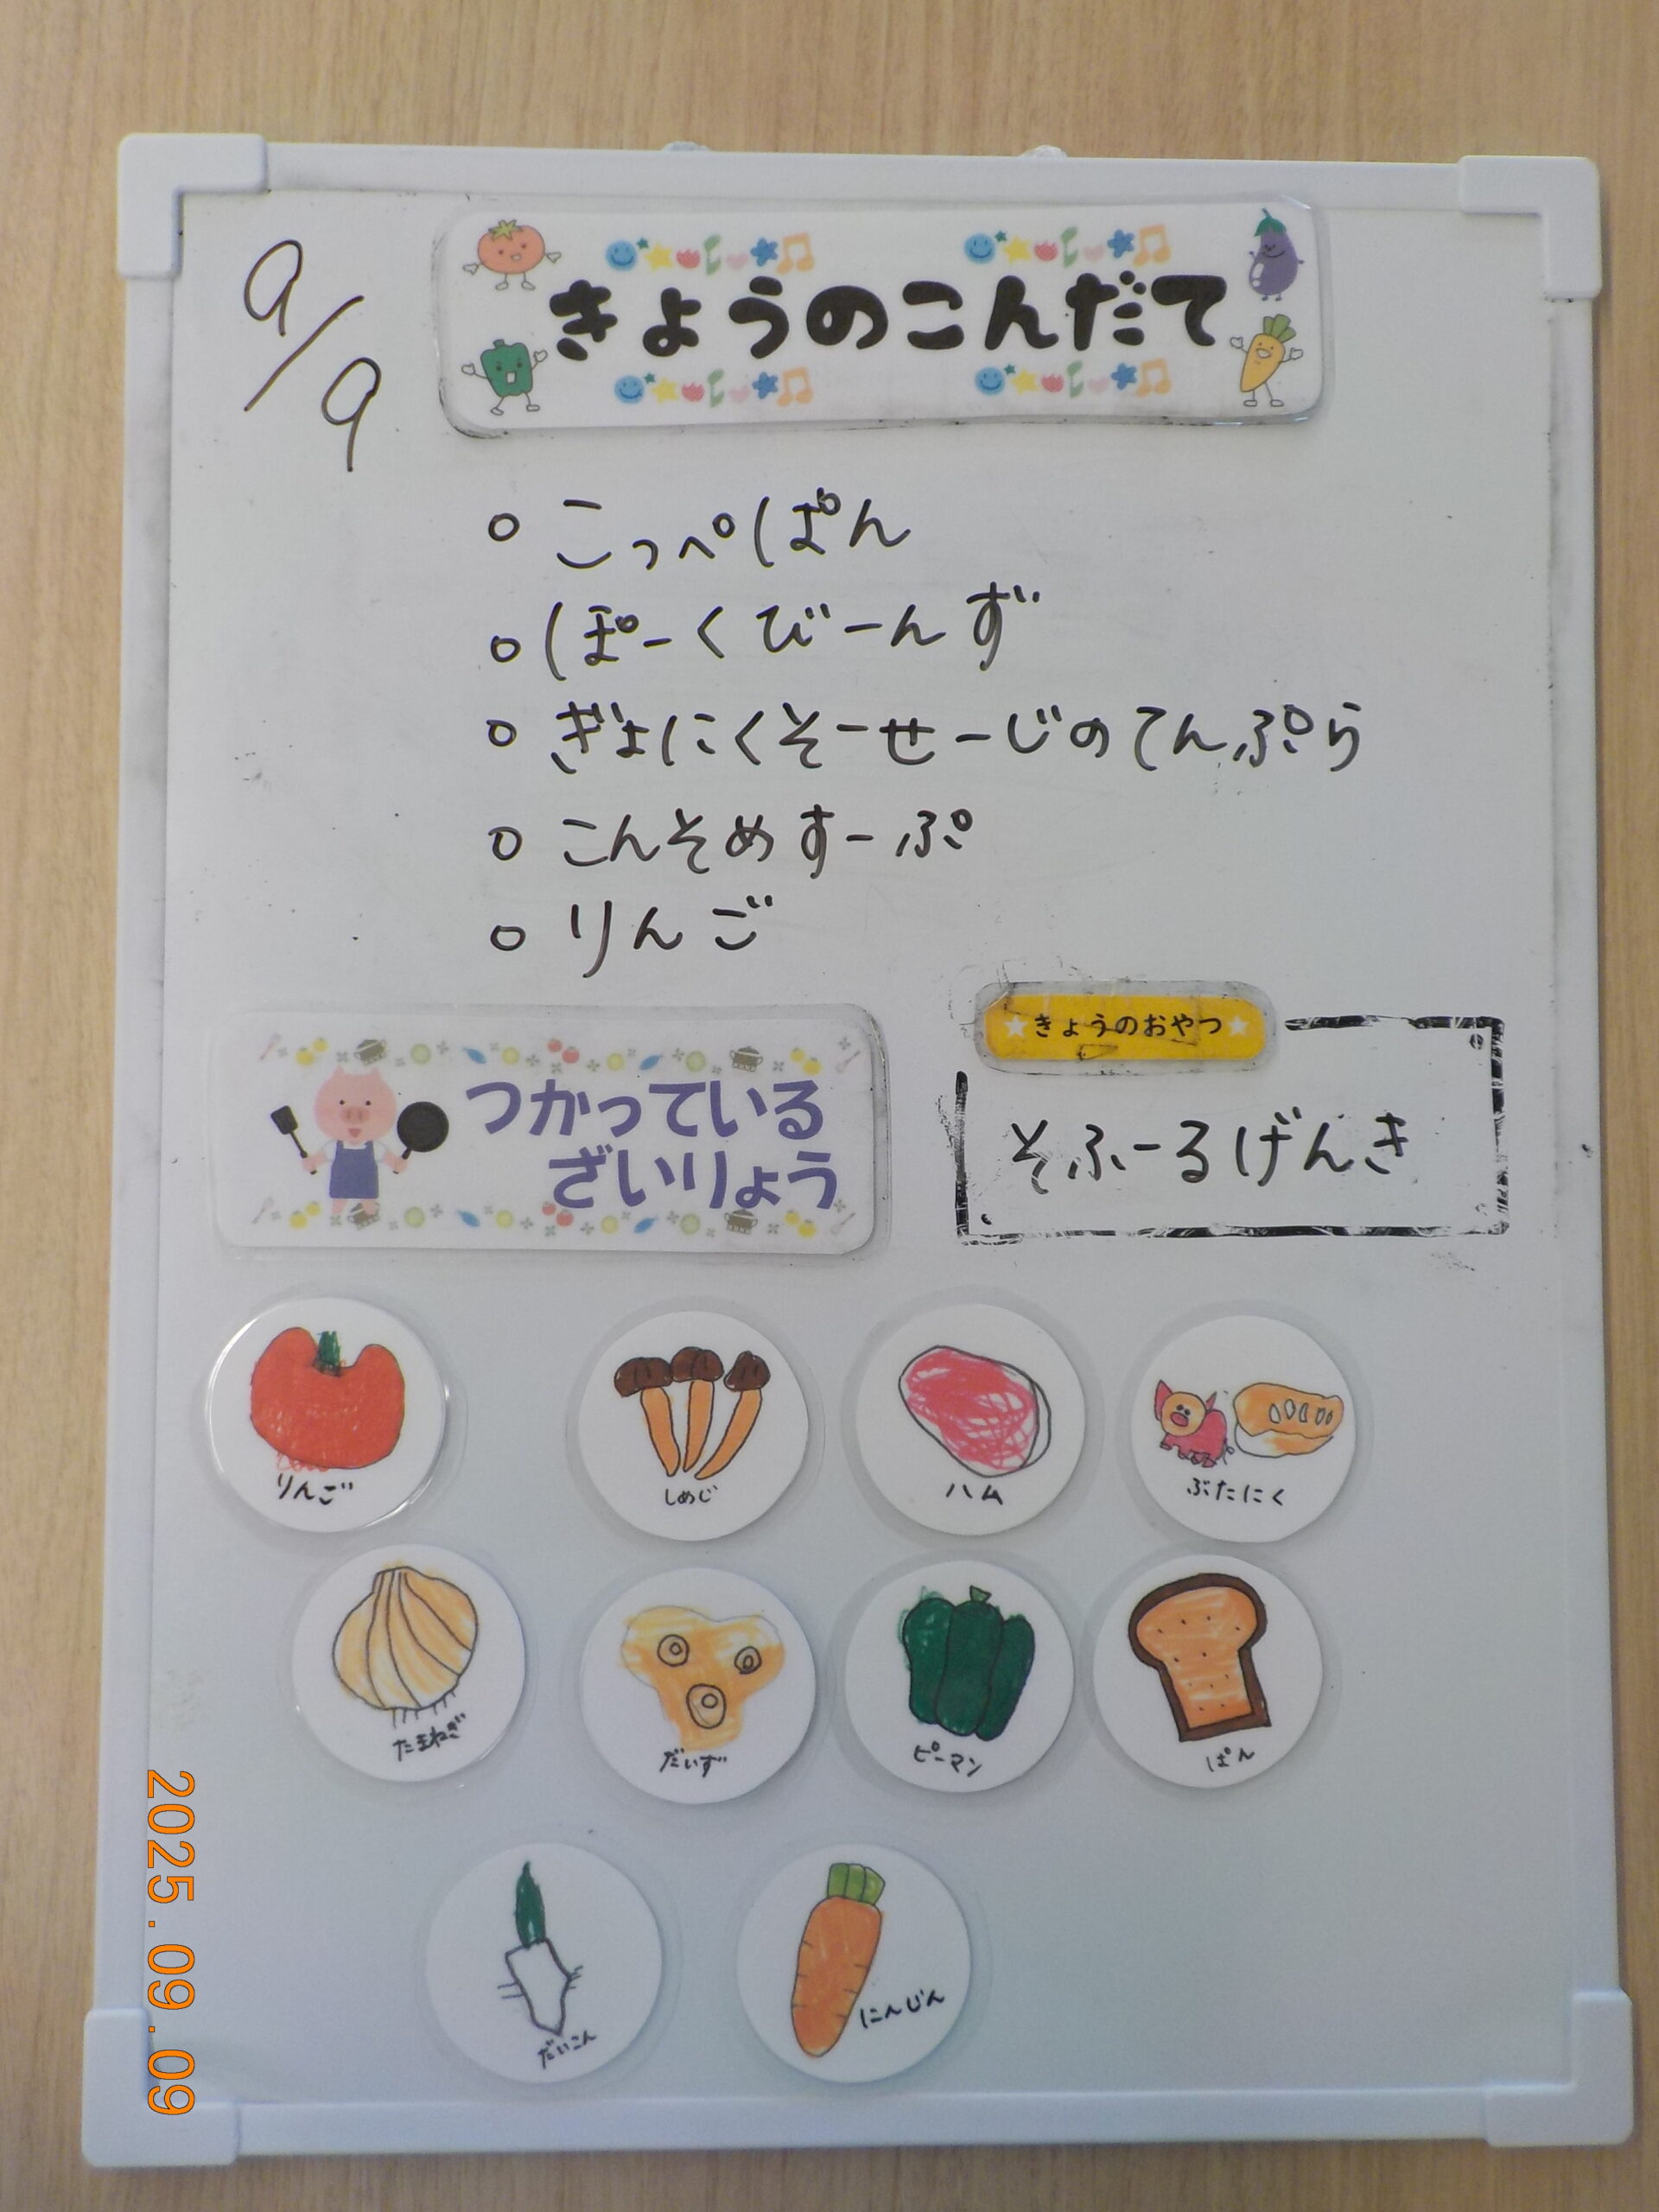 9/9
きょうのこんだて
○ こっぺぱん
○ ぽーくびーんず
○ ぎょにくそーせーじのてんぷら
○ こんそめすーぷ
○ りんご
つかっている
ざいりょう
きょうのおやつ
そふーるげんき
りんご
しめじ
ハム
ぶたにく
たまねぎ
だいず
ピーマン
ぱん
だいこん
にんじん
2025.09.09